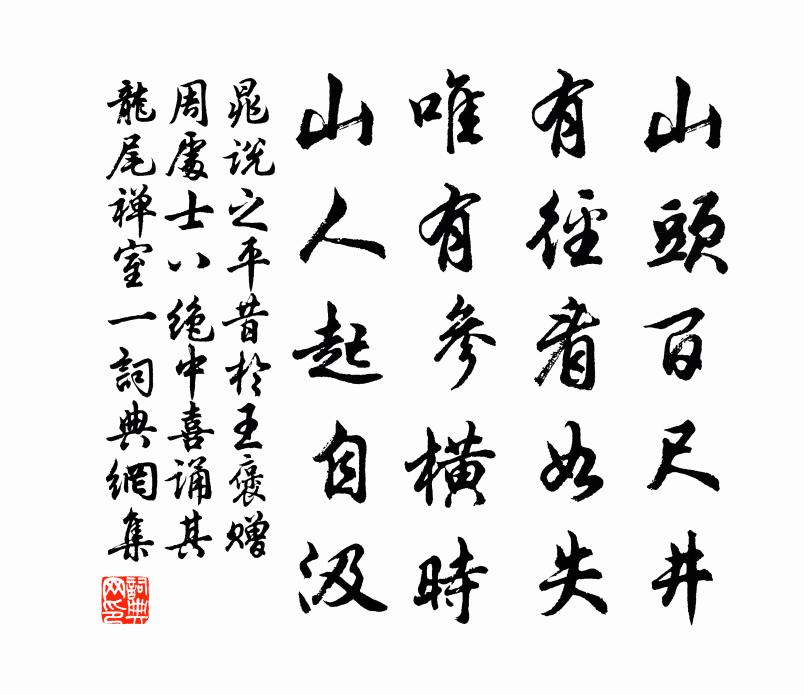 山頭百尺井
有徑看如失
唯有參橫時
山人起自汲
晁说之平昔於王褒赠
周處士八绝中喜诵其
龍尾禅室一詞典網集
詞典網印